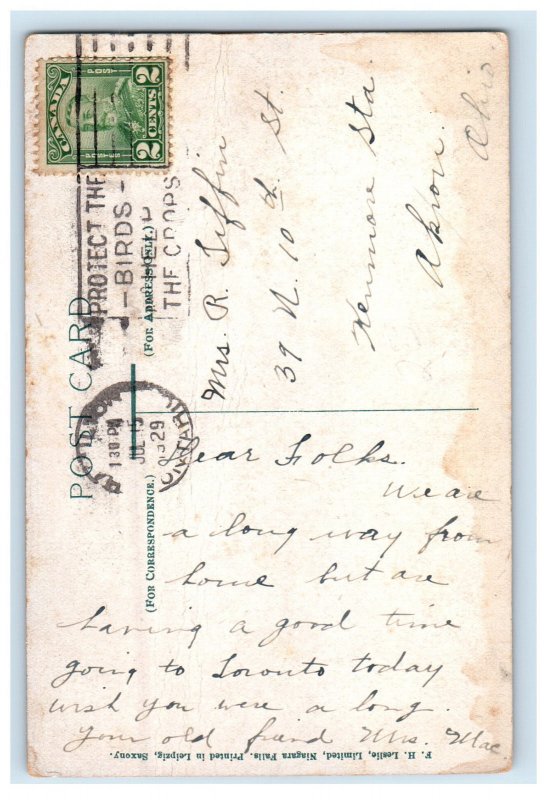 POST CARD
CANADA
POSTES POST
2 CENTS 2
PROTECT THE
-BIRDS-
HELP
THE CROPS
1 30 PM
JUL 15
1929
ONTARIO
(For Address Only.)
Mrs. R. Tiffin
39 N. 10th St.
Kenmore Sta.
Akron
Ohio
(For Correspondence.)
Dear Folks.
We are
a long way from
home but are
having a good time
going to Toronto today
wish you were a long.
Your old friend Mrs. Mac
F. H. Leslie, Limited, Niagara Falls. Printed in Leipzig, Saxony.